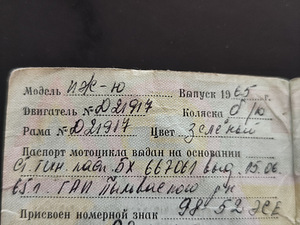 Модель ИЖ-Ю Выпуск 1965 г.
Двигатель № Д21917 Коляска б/ю
Рама № Д21917 Цвет зеленый
Паспорт мотоцикла выдан на основании
667061 выд. 15.06.
65 г. ГАИ р-н
Присвоен номерной знак 98-52 ЖЕ